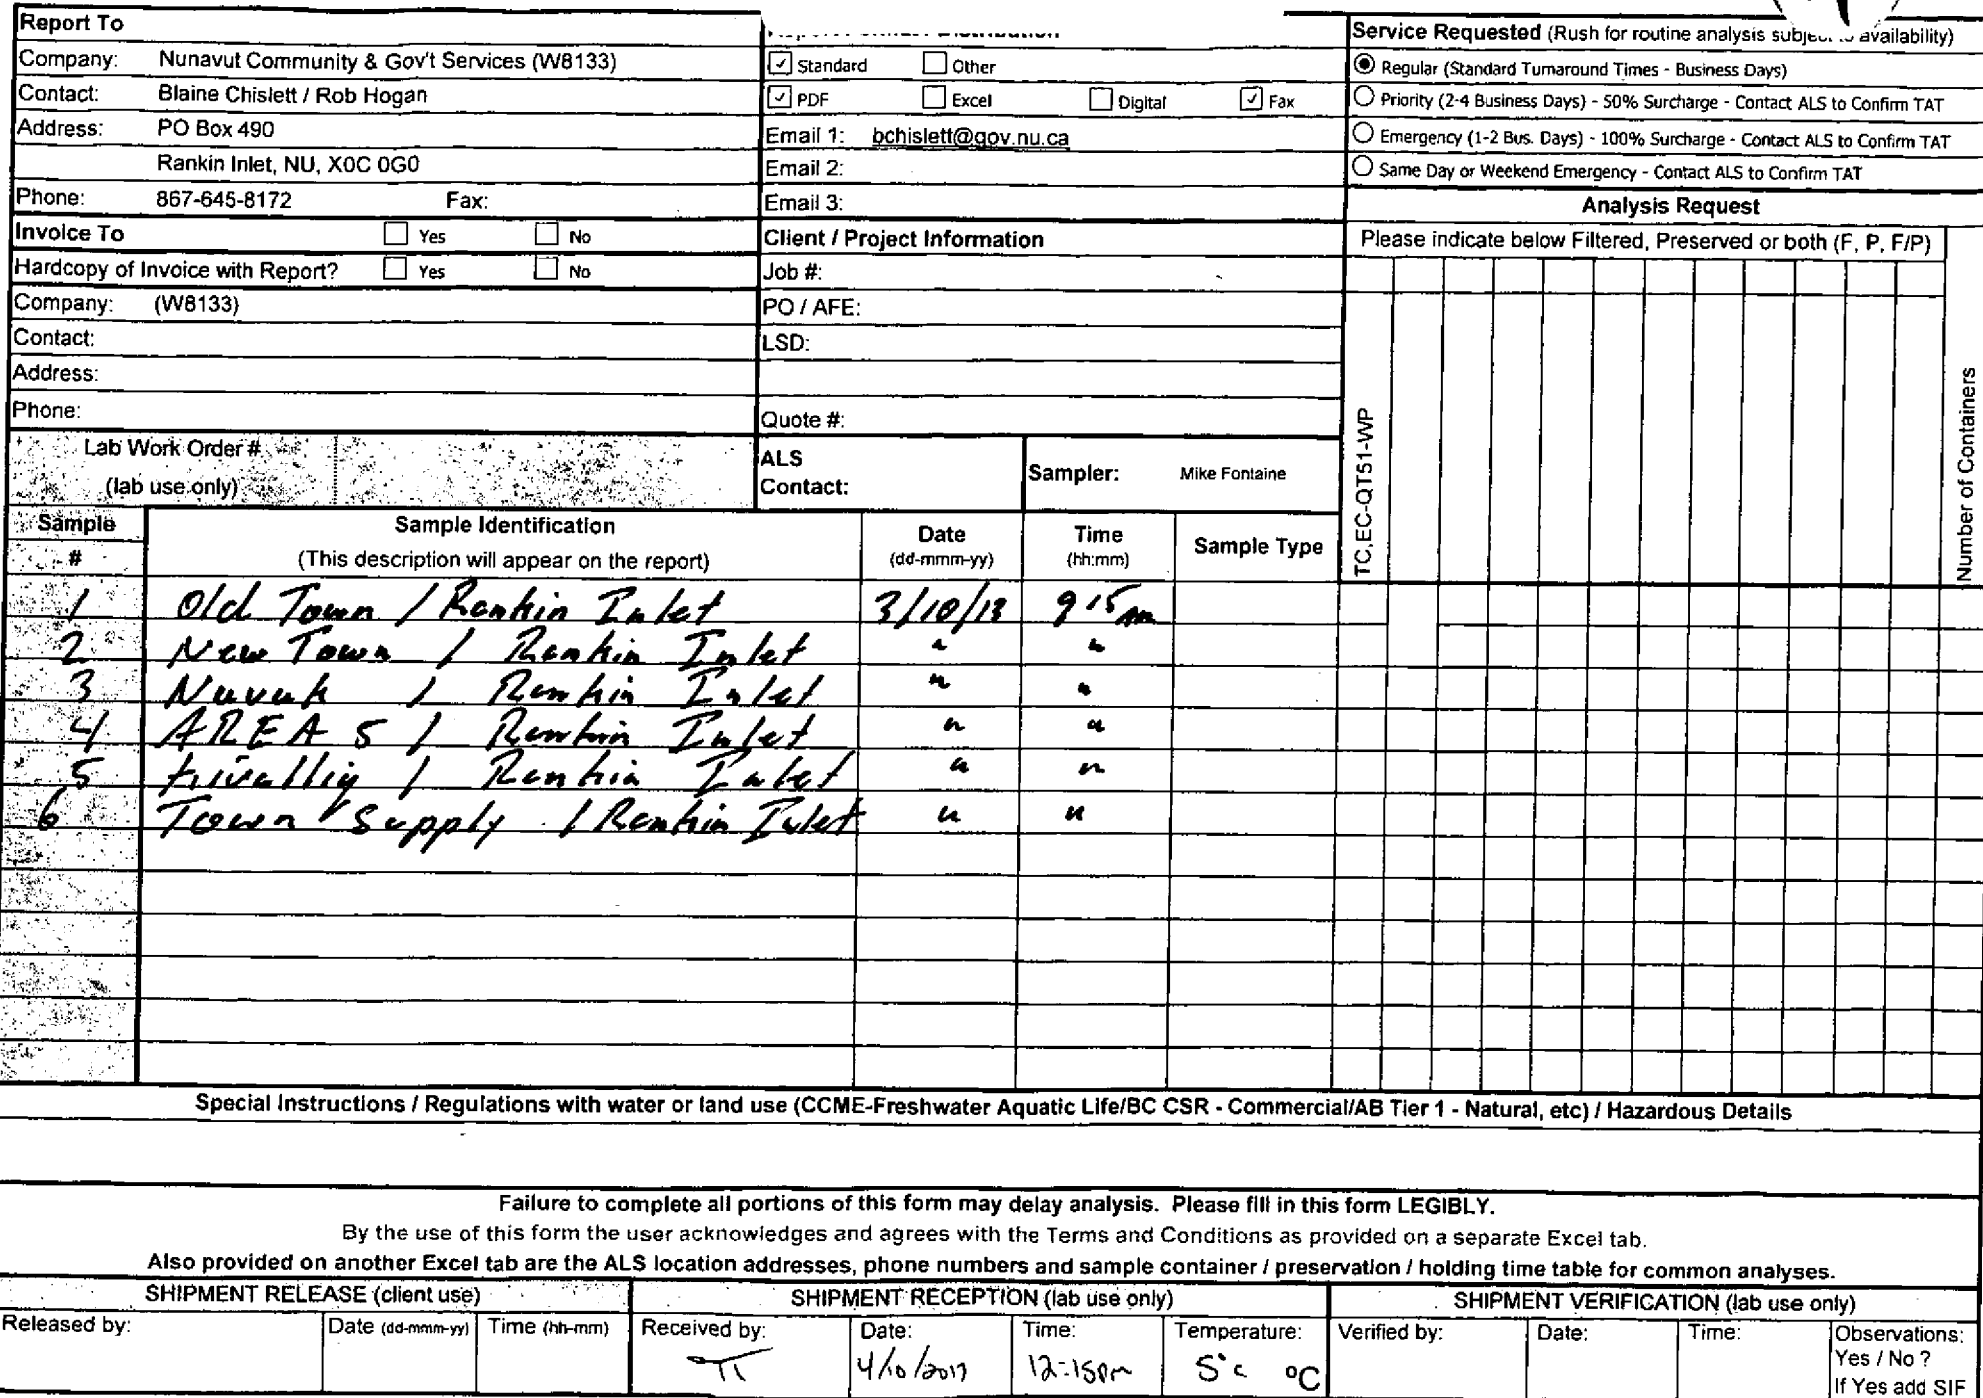 Report To
Company: Nunavut Community & Gov't Services (W8133)
Contact: Blaine Chislett / Rob Hogan
Address: PO Box 490
Rankin Inlet, NU, X0C 0G0
Phone: 867-645-8172 Fax:
Invoice To Yes No
Hardcopy of Invoice with Report? Yes No
Company: (W8133)
Contact:
Address:
Phone:
Lab Work Order #
(lab use only)
Standard Other
PDF Excel Digital Fax
Email 1: bchislett@gov.nu.ca
Email 2:
Email 3:
Client / Project Information
Job #:
PO / AFE:
LSD:
Quote #:
ALS
Contact:
Sampler: Mike Fontaine
Service Requested (Rush for routine analysis subject to availability)
Regular (Standard Turnaround Times - Business Days)
Priority (2-4 Business Days) - 50% Surcharge - Contact ALS to Confirm TAT
Emergency (1-2 Bus. Days) - 100% Surcharge - Contact ALS to Confirm TAT
Same Day or Weekend Emergency - Contact ALS to Confirm TAT
Analysis Request
Please indicate below Filtered, Preserved or both (F, P, F/P)
TC,EC-QT51-WP
Number of Containers
Sample # Sample Identification Date Time Sample Type
(This description will appear on the report) (dd-mmm-yy) (hh:mm)
1 Old Town / Rankin Inlet 3/10/13 9 15 am
2 New Town / Rankin Inlet " "
3 Nuvuk / Rankin Inlet " "
4 AREA 5 / Rankin Inlet " "
5 Kivalliq / Rankin Inlet " "
6 Town Supply / Rankin Inlet " "
Special Instructions / Regulations with water or land use (CCME-Freshwater Aquatic Life/BC CSR - Commercial/AB Tier 1 - Natural, etc) / Hazardous Details
Failure to complete all portions of this form may delay analysis. Please fill in this form LEGIBLY.
By the use of this form the user acknowledges and agrees with the Terms and Conditions as provided on a separate Excel tab.
Also provided on another Excel tab are the ALS location addresses, phone numbers and sample container / preservation / holding time table for common analyses.
SHIPMENT RELEASE (client use) SHIPMENT RECEPTION (lab use only) SHIPMENT VERIFICATION (lab use only)
Released by: Date (dd-mmm-yy) Time (hh-mm) Received by: Date: Time: Temperature: Verified by: Date: Time: Observations:
4/10/2013 12:15pm 5°c °C Yes / No ?
If Yes add SIF